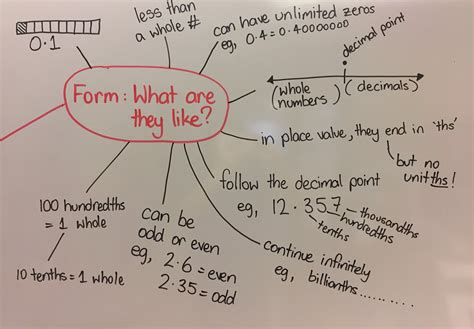 0.1
less than
a whole #
can have unlimited zeros
eg, 0.4 = 0.40000000
decimal point
(whole
numbers)
(decimals)
Form: What are
they like?
in place value, they end in 'ths'
but no
unitths!
follow the decimal point
eg, 12.357
thousandths
hundredths
tenths
100 hundredths
= 1 whole
10 tenths = 1 whole
can be
odd or even
eg, 2.6 = even
2.35 = odd
continue infinitely
eg, billionths..........